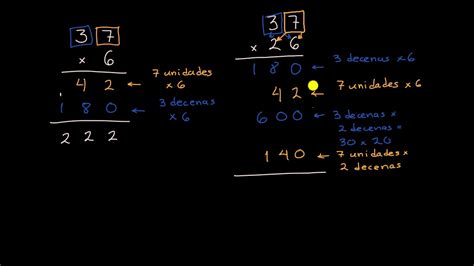 37
× 6
42 ← 7 unidades × 6
180 ← 3 decenas × 6
222
37
× 26
180 ← 3 decenas × 6
42 ← 7 unidades × 6
600 ← 3 decenas × 2 decenas = 30 × 20
140 ← 7 unidades × 2 decenas